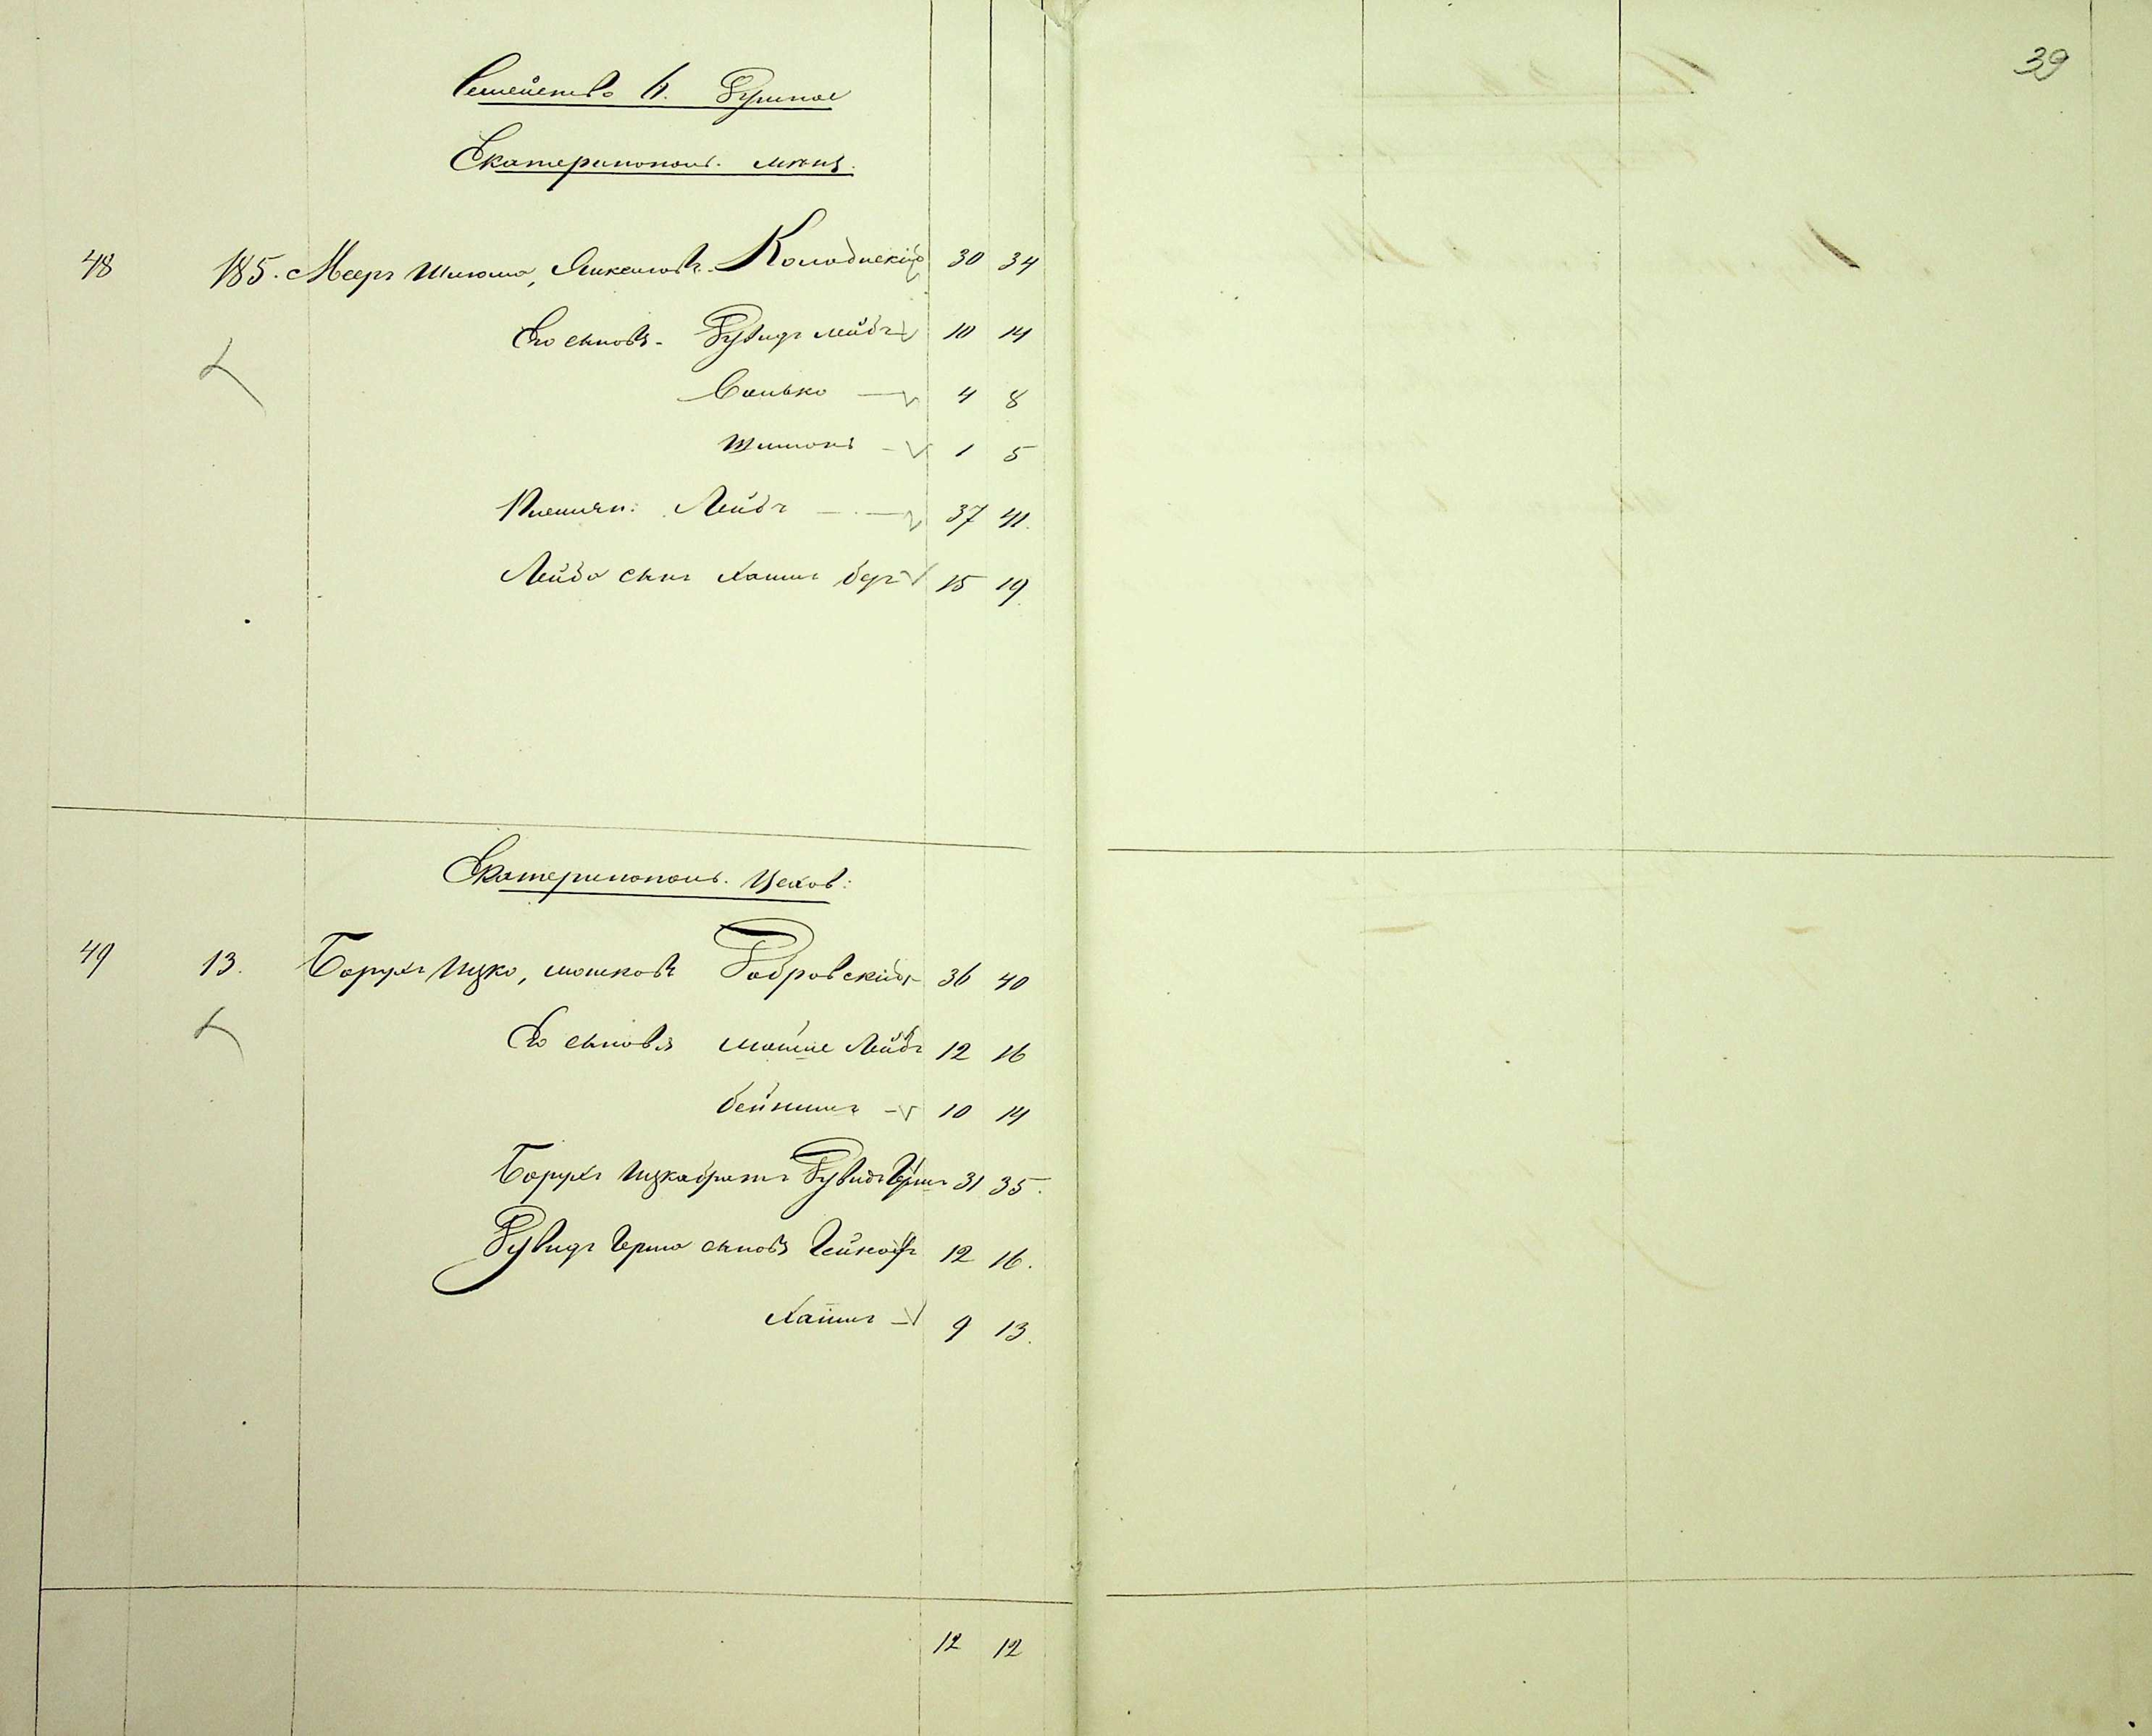 39
Семейство 6. душное
Екатеринопол. мѣщ.
48 185. Меер Шлиома, Янкелевъ Колодиский 30 34
Его сыновья Дувидъ Лейбъ 10 14
Санько 4 8
Шимонъ 1 5
Племян: Лейбъ 37 41.
Лейба сынъ Хаимъ Беръ 15 19.
Екатеринопол. Цехов:
49 13. Борухъ Ицко, Мошковъ Бобровский 36 40
Его сыновья Мошке Лейбъ 12 16
Бейнишъ 10 14
Борухъ Ицка братъ Дувидъ Гершъ 31 35.
Дувидъ Герша сыновья 12 16.
Хаимъ 9 13.
12 12